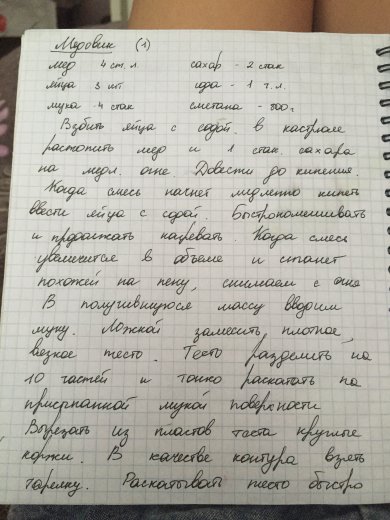 Медовик (1)
мёд 4 ст. л. сахар - 2 стак
яйца 3 шт сода - 1 ч. л.
мука 4 стак сметана - 800 г
Взбить яйца с содой. В кастрюле
растопить мёд и 1 стак. сахара
на медл. огне. Довести до кипения.
Когда смесь начнет медленно кипеть
ввести яйца с содой. Быстро помешивать
и продолжать нагревать. Когда смесь
увеличится в объеме и станет
похожей на пену, снимаем с огня
В получившуюся массу вводим
муку. Ложкой замесить плотное,
вязкое тесто. Тесто разделить на
10 частей и тонко раскатать на
присыпанной мукой поверхности
Вырезать из пластов теста круглые
коржи. В качестве контура взять
тарелку. Раскатывать тесто быстро